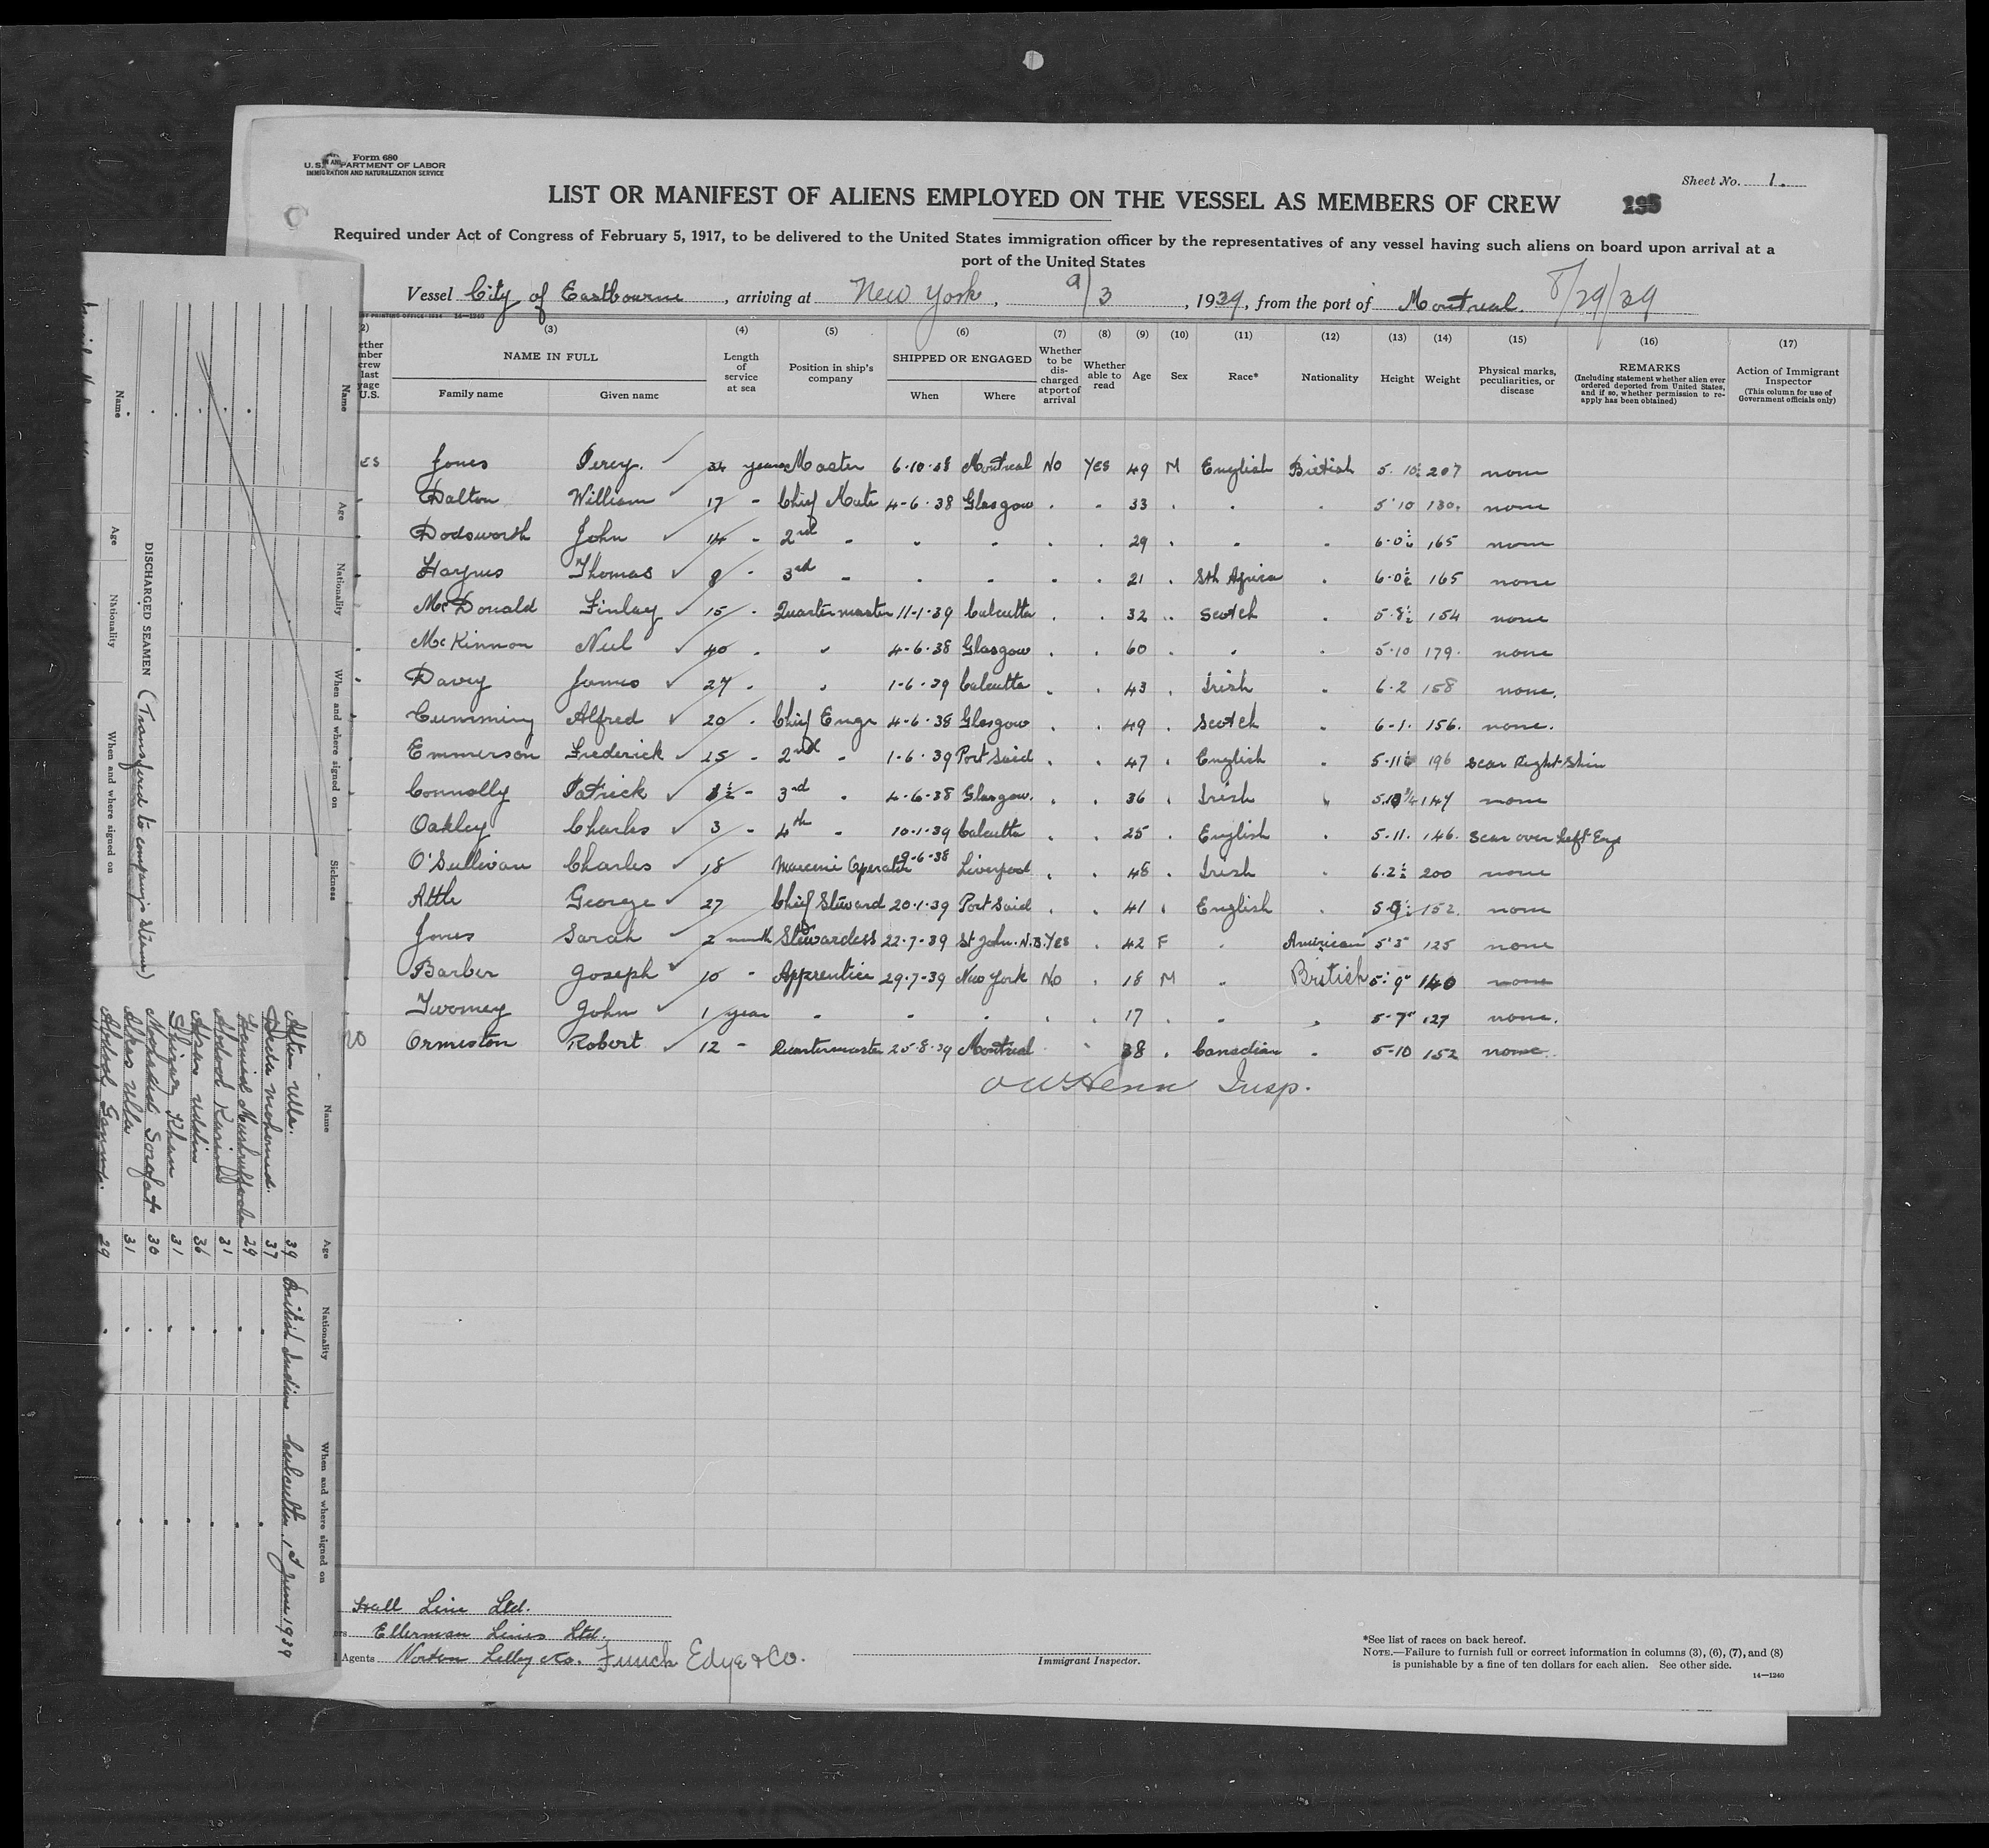 Form 680
U.S. DEPARTMENT OF LABOR
IMMIGRATION AND NATURALIZATION SERVICE
Sheet No. 1.
LIST OR MANIFEST OF ALIENS EMPLOYED ON THE VESSEL AS MEMBERS OF CREW
195
Required under Act of Congress of February 5, 1917, to be delivered to the United States immigration officer by the representatives of any vessel having such aliens on board upon arrival at a
port of the United States
Vessel City of Eastbourne, arriving at New York, 9/3, 1939, from the port of Montreal. 8/29/39
(3) (4) (5) (6) (7) (8) (9) (10) (11) (12) (13) (14) (15) (16) (17)
NAME IN FULL
Family name Given name
Length of service at sea
Position in ship's company
SHIPPED OR ENGAGED
When Where
Whether to be discharged at port of arrival
Whether able to read
Age Sex Race* Nationality Height Weight
Physical marks, peculiarities, or disease
REMARKS
(Including statement whether alien ever ordered deported from United States, and if so, whether permission to reapply has been obtained)
Action of Immigrant Inspector
(This column for use of Government officials only)
Jones Percy. 34 years Master 6-10-38 Montreal No Yes 49 M English British 5. 10½ 207 none
Dalton William 17 - Chief Mate 4-6-38 Glasgow . . 33 . . . 5'10 130. none
Dodsworth John 14 - 2nd - - - . . 29 . - - 6-0½ 165 none
Haynes Thomas 8 - 3rd - - - . . 21 . Sth Africa . 6-0½ 165 none
McDonald Finlay 15 - Quartermaster 11-1-39 Calcutta . . 32 . Scotch . 5-8½ 154 none
McKinnon Neil 40 - " 4-6-38 Glasgow . . 60 . . . 5-10 179. none
Davey James 27 - " 1-6-39 Calcutta . . 43 . Irish . 6-2 158 none.
Cumming Alfred 20 - Chief Engr 4-6-38 Glasgow . . 49 . Scotch . 6-1. 156. none.
Emmerson Frederick 25 - 2nd - 1-6-39 Port Said . . 47 . English . 5-11½ 196 Scar Right Shin
Connolly Patrick - 3rd - 4-6-38 Glasgow. . . 36 . Irish . 5.10¾ 147 none
Oakley Charles 3 - 4th - 10-1-39 Calcutta . . 25 . English . 5-11. 146. Scar over Left Eye
O'Sullivan Charles 18 Marconi Operator 9-6-38 Liverpool . . 48 . Irish . 6.2½ 200 none
Attle George 27 Chief Steward 20-1-39 Port Said . . 41 . English . 5-9½ 152. none
Jones Sarah 2 month Stewardess 22-7-39 St John. N.B. Yes . 42 F . American 5'5" 125 none
Barber Joseph 10 - Apprentice 29-7-39 New York No . 18 M . British 5'-9" 140 none
Twomey John 1 year - - - . . 17 . . . 5-7" 127 none.
NO Ormiston Robert 12 - Quartermaster 25-8-39 Montreal . . 38 . Canadian . 5-10 152 none.
Insp.
Hall Line Ltd.
Ellerman Lines Ltd.
Agents Norton Lilly & Co. Funch Edye & Co.
Immigrant Inspector.
*See list of races on back hereof.
NOTE.—Failure to furnish full or correct information in columns (3), (6), (7), and (8)
is punishable by a fine of ten dollars for each alien. See other side.
14—1240
Name Age Nationality When and where signed on Sickness
DISCHARGED SEAMEN (Transfered to company's steamer)
Name Age Nationality When and where signed on
Name Age Nationality When and where signed on
Ulla. 39 British Indian Calcutta 1st June 1939
Mohamed. 37
29
Abdool Karim 31
Uddin 36
Khan 31
30
Abas Ulla 31
Abdool 29